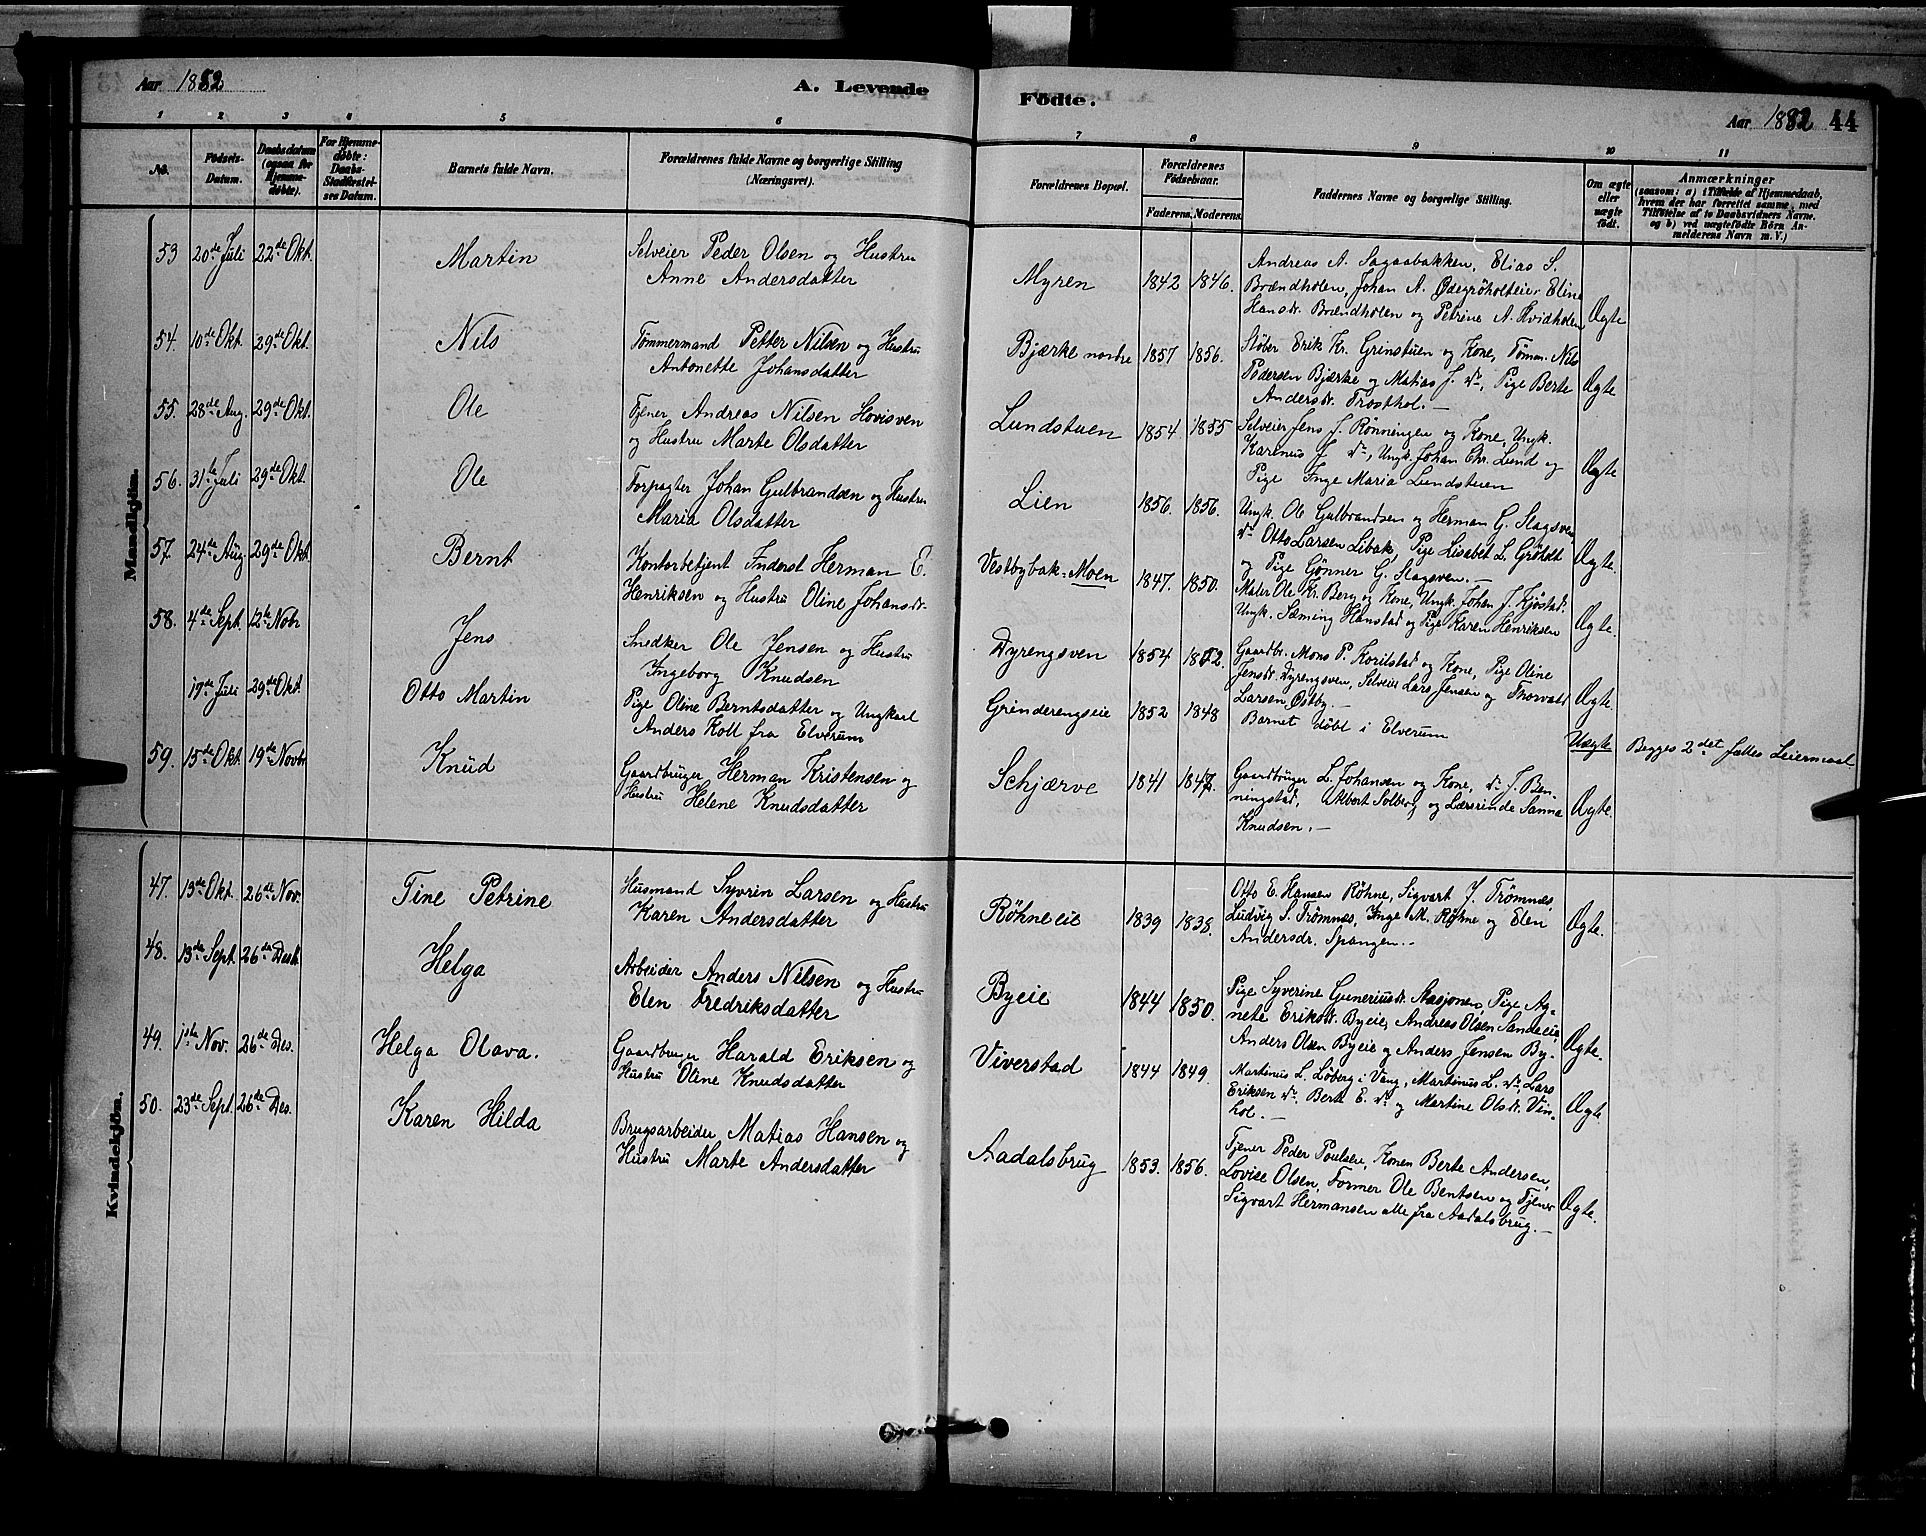 Aar 1882
A. Levende Födte.
Aar 1882 44
1 2 3 4 5 6 7 8 9 10 11
No.
Födsels-Datum.
Daabsdatum (ogsaa for Hjemmedöbte).
For Hjemmedöbte: Daabs-Stadfæstelses Datum.
Barnets fulde Navn.
Forældrenes fulde Navne og borgerlige Stilling (Næringsvei).
Forældrenes Bopæl.
Forældrenes Födselsaar.
Faderens. Moderens.
Faddernes Navne og borgerlige Stilling.
Om ægte eller uægte födt.
Anmærkninger
(saasom: a) i Tilfælde af Hjemmedaab, hvem der har forrettet samme, med Tilföielse af to Daabsvidners Navne. og b) ved uægtefödte Börn Anmelderens Navn m. V.)
Mandkjön.
53 20de Juli 22de Okt. Martin
Selveier Peder Olsen og Hustru
Anne Andersdatter
Myren 1842 1846.
Andreas A. Sagaabakken, Elias S.
Brændholen, Johan A. Ødegröholteie, Eline
Hansdr. Brændholen og Petrine A. Hvidholen
Ægte
54. 10de Okt. 29de Okt. Nils
Tømmermand Petter Nilsen og Hustru
Antonette Johansdatter
Bjærke nordre 1857 1856.
Støber Erik Kr. Grinstuen og Kone, Tømm. Nils
Pedersen Bjærke og Matias J. do, Pige Berte
Andersdr. Frosthol. –
Ægte
55. 28de Aug. 29de Okt. Ole
Tjener Andreas Nilsen Hovisven
og Hustru Marte Olsdatter
Lundstuen 1854 1855
Selveier Jens J. Rönningen og Kone, Ungk.
Karenus J. do, Ungk. Johan Chr. Lund og
Pige Inge Maria Lundstuen
Ægte
56. 31te Juli 29de Okt. Ole
Forpagter Johan Gulbrandsen og Hustru
Maria Olsdatter
Lien 1856. 1856.
Ungk. Ole Gulbrandsen og Herman G. Slagsven
do Otto Larsen Libak, Pige Lisabet L. Gröholt
og Pige Gönner G. Slagsven. –
Ægte.
57. 24de Aug. 29de Okt. Bernt
Kontorbetjent Inderst Herman E.
Henriksen og Hustru Oline Johansdr.
Vestbybak: Moen 1847. 1850.
Maler Ole Kr. Berg og Kone, Ungk. Johan J. Kjöstad.
Ungk. Sæming Hanstad og Pige Karen Henriksen
Ægte.
58. 4de Sept. 12te Nobr Jens
Snedker Ole Jensen og Hustru
Ingeborg Knudsen
Dyrengsven 1854
Gaardbr. Mons P. Korilstad og Kone, Pige Oline
Jensdr. Dyrengsven, Selveier Lars Jensen og Thorvald
Larsen Østby. –
Ægte.
17de Juli 29de Okt. Otto Martin
Pige Oline Berntsdatter og Ungkarl
Anders Koll fra Elverum
Grinderengseie 1852 1848
Barnet döbt i Elverum
Uægte Begges 2det fælles Leiermaal
59. 15de Okt. 19de Novbr Knud
Gaardbruger Herman Kristensen og
Hustru Helene Knudsdatter
Schjærve 1841 1847.
Gaardbruger L. Johansen og Kone, do J. Ben-
ningstad, Albert Solberg og Lærerinde Sanna
Knudsen. –
Ægte.
Kvindekjön.
47. 13de Okt. 26de Nov. Tine Petrine
Husmand Syvrin Larsen og Hustru
Karen Andersdatter
Röhneeie 1839 1838.
Otto E. Hansen Röhne, Sigvart J. Trömnæs,
Ludvig S. Trömnæs, Inge M. Röhne og Elen
Andersdr. Spangen. –
Ægte.
48. 13de Sept. 26de Helga
Arbeider Anders Nilsen og Hustru
Elen Fredriksdatter
Byeie 1844 1850.
Pige Syverine Guneriusdr. Stasjonen, Pige Ag-
nete Eriksdr. Byeie, Andreas Olsen Sandeeie
Anders Olsen Byeie og Anders Jensen By-
Ægte.
49. 1ste Nov. 26de Des. Helga Olava.
Gaardbruger Harald Eriksen og
Hustru Oline Knudsdatter
Viverstad 1844 1849.
Martinus L. Löberg i Vang, Martinus L. do, Lars
Eriksen do. Berte E. do og Martine Olsdr. Vin-
hol. –
Ægte.
50. 23de Sept. 26de Des. Karen Hilda
Brugsarbeider Matias Hansen og
Hustru Marte Andersdatter
Aadalsbrug 1853. 1856.
Tjener Peder Poulsen, Konen Berte Andersen,
Lovise Olsen, Former Ole Bentsen og Tjener
Sigvart Hermansen alle fra Aadalsbrug. –
Ægte.